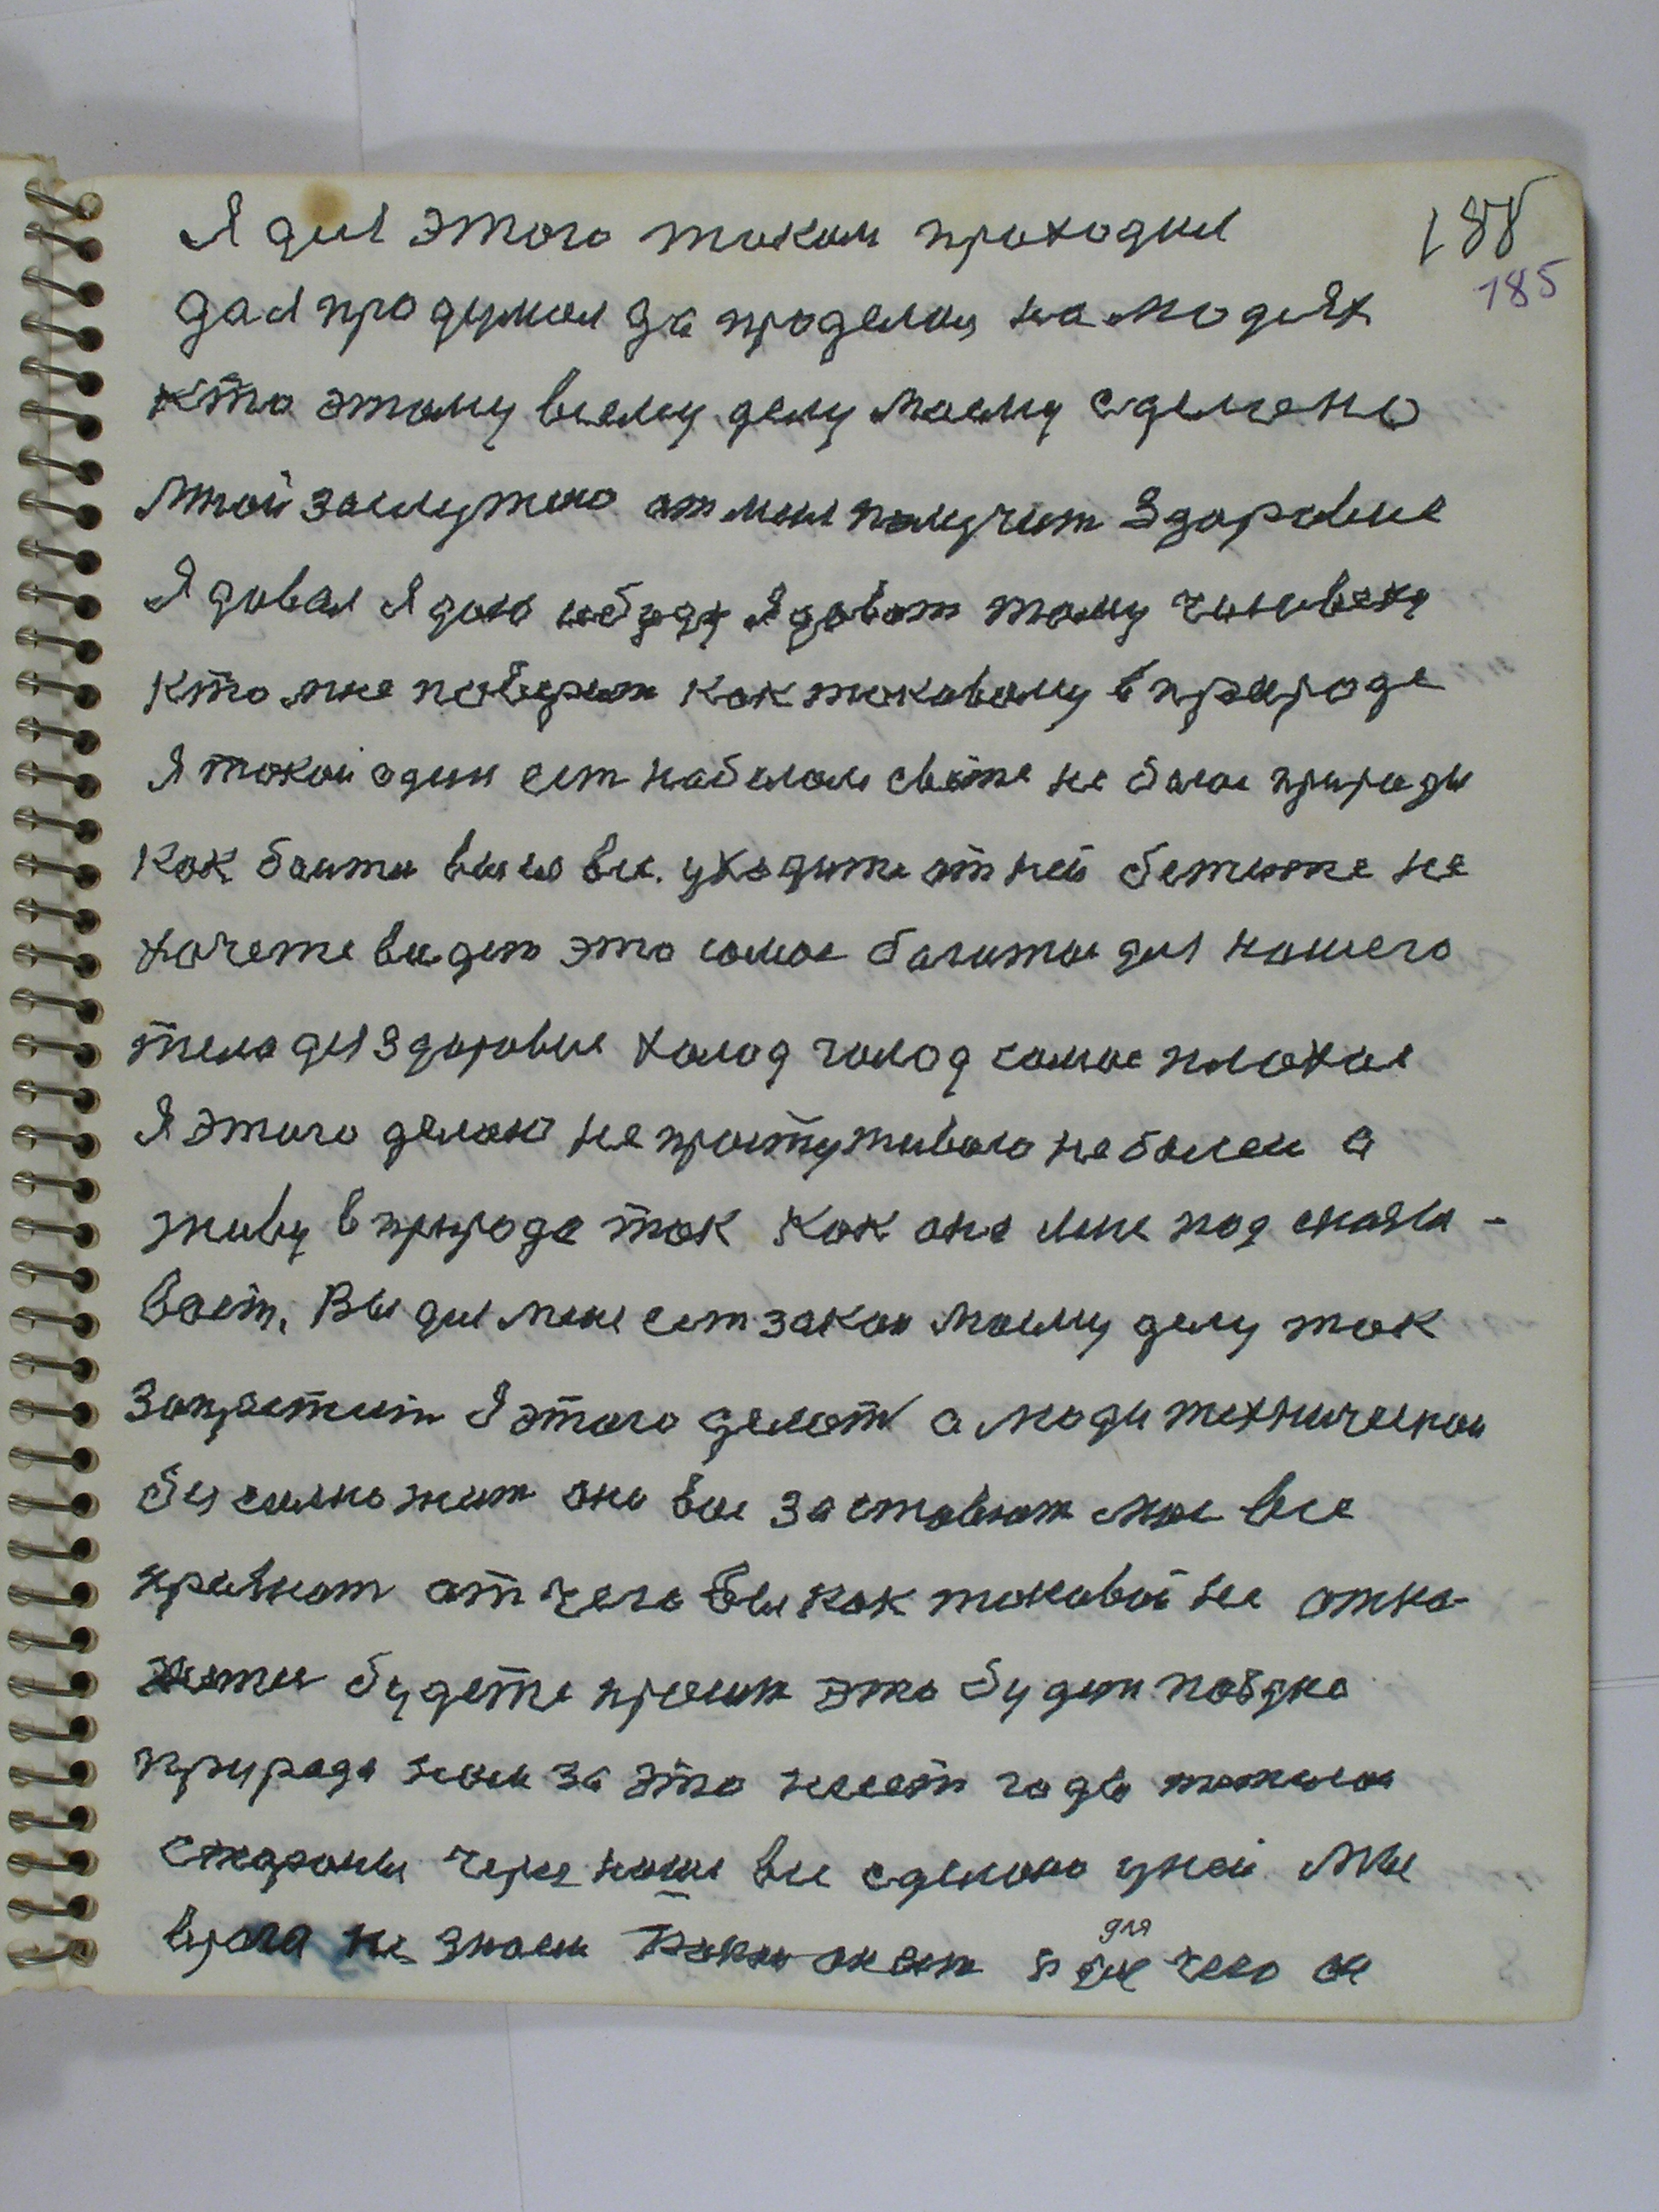 188
185
Я для этого таким проходил
дая продумал да проделал на людях
кто этому всему делу моему сделоно
мной заслужено от меня получит Здоровие
Я довал Я даю и буду Я доват тому чиловеку
кто мне поверит как токовому в природе
Я токой один ест на белом свете не боюс природы
Как боитис вы ее все. уходите от ней бежите не
хочете видет это самое богатое для нашего
тела для Здоровия холод голод самое плохое
Я этого делаю не простуживаюс не болею а
живу в природе так как она мне под сказы-
вает. Вы для меня ест закон моему делу так
Запретит Я этого делат а люди технической
безсилно жит она вас заставют мое все
принят от чего вы как токовой не отка-
жетис будете просит это будит поздно
природа нам за это несет года тяжелой
стороны через наше все сделоно у ней Мы
врага не знаем для чего он